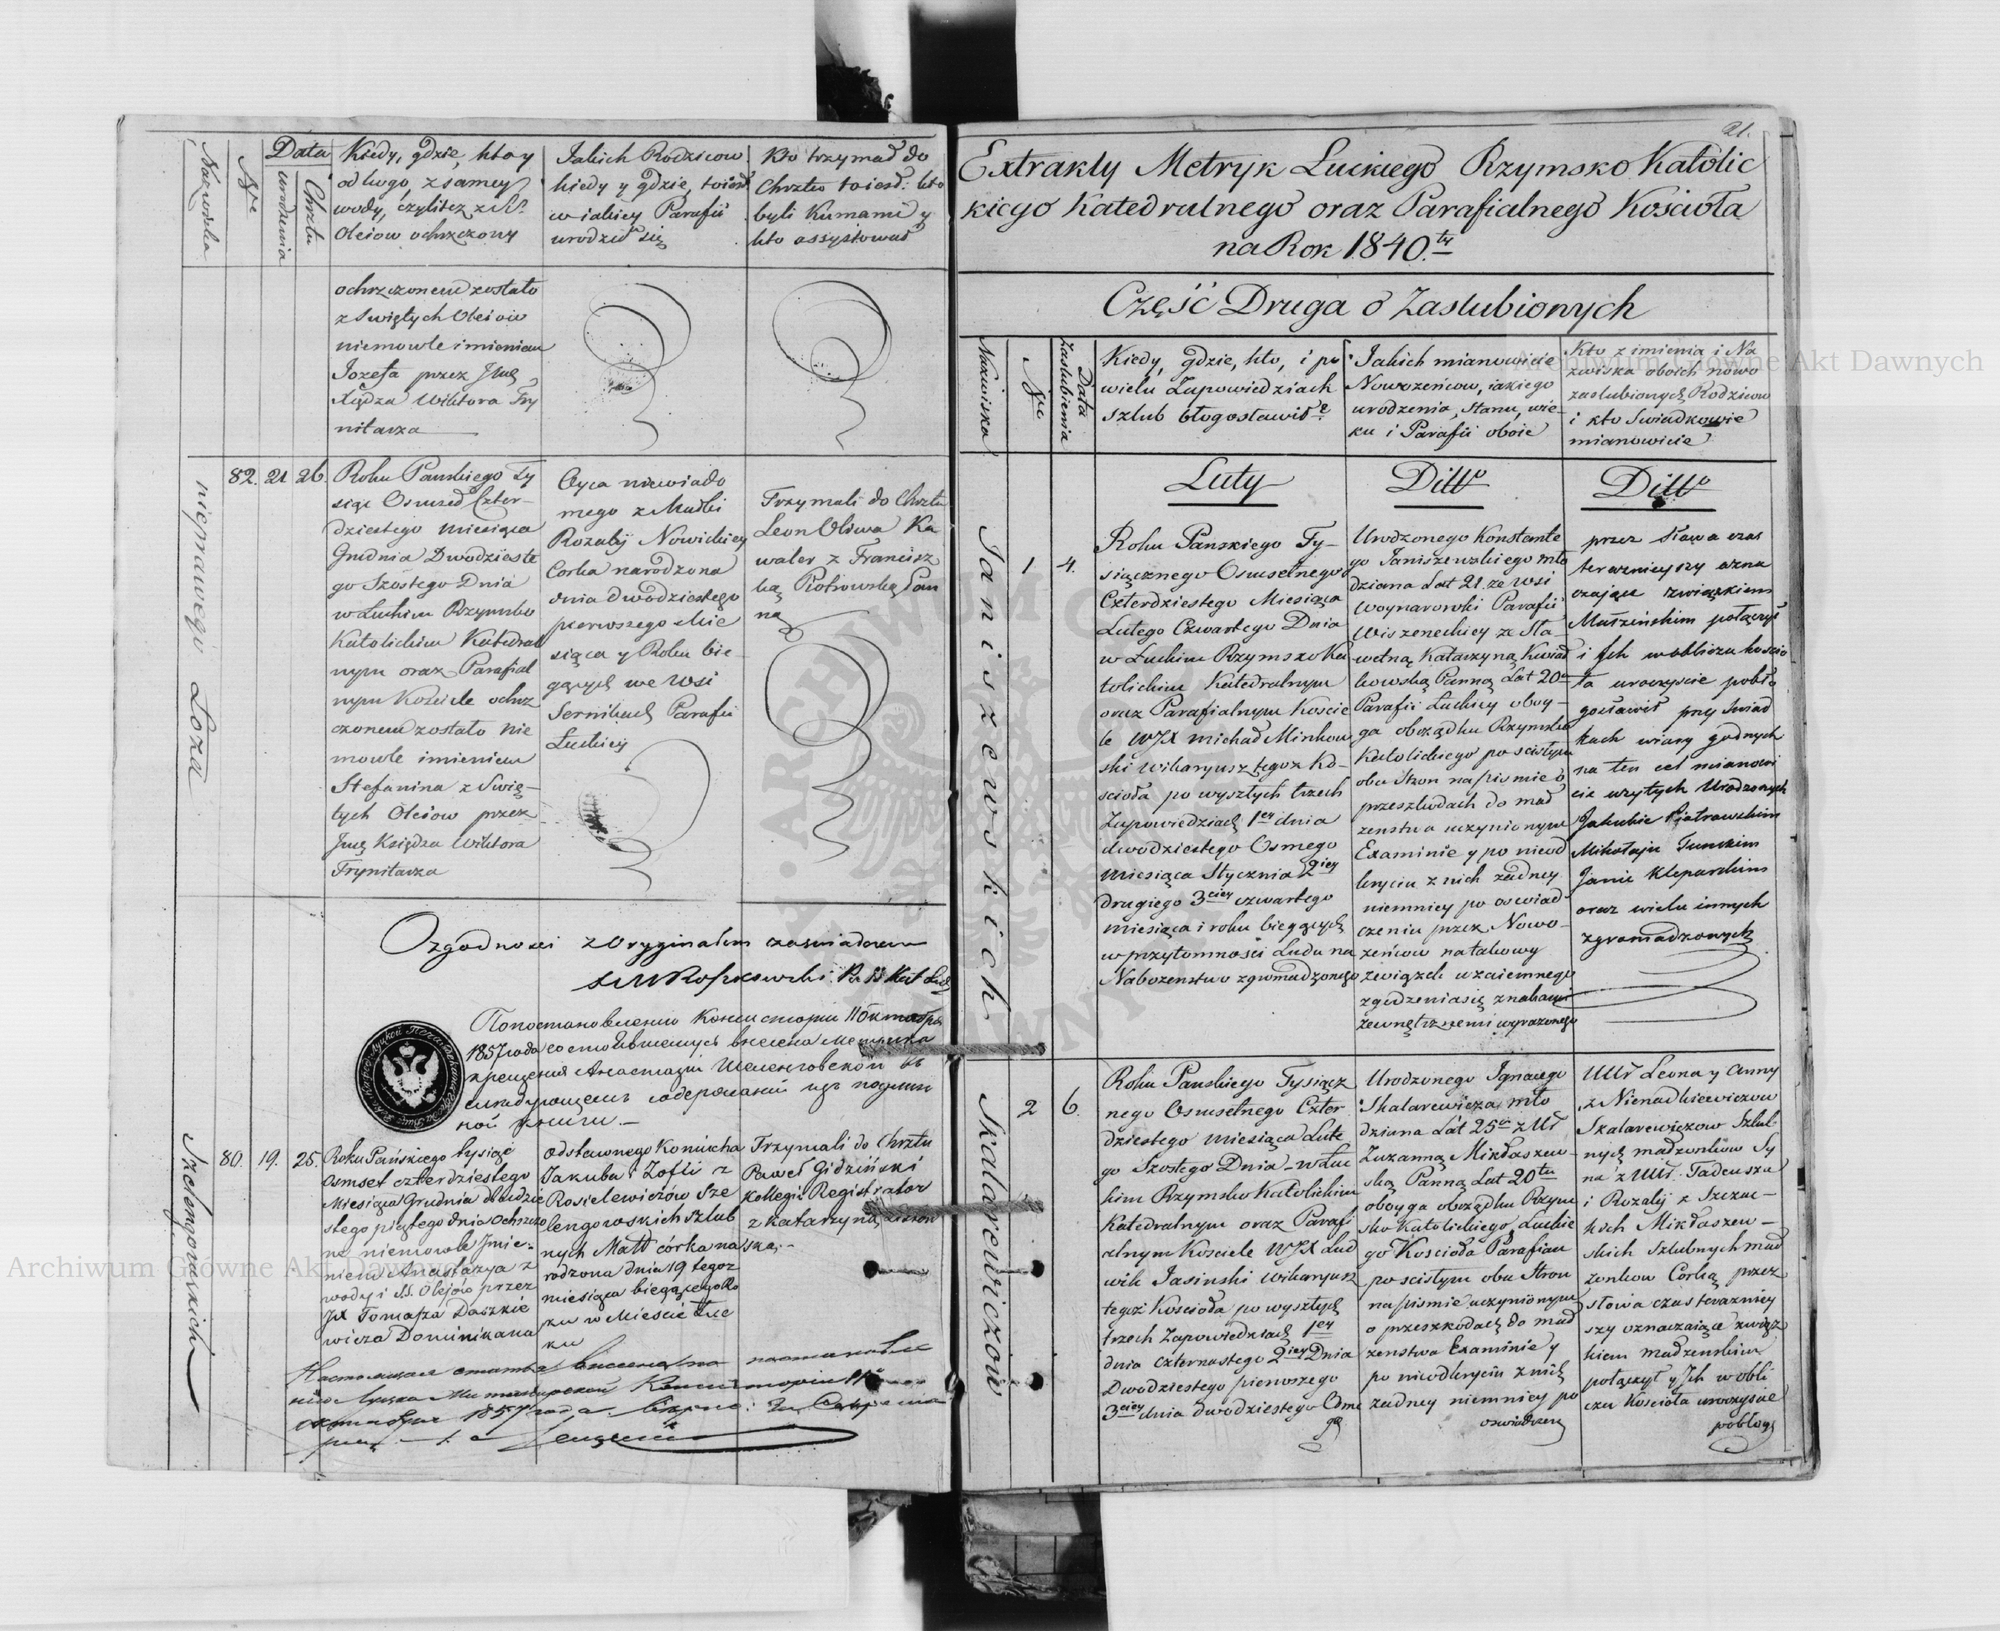 Nazwiska
Nre
Data
urodzenia
Chrztu
Kiedy, gdzie, kto y
od kogo, z samey
wody, czyli też z SS.
Oleiow ochrzczony
Jakich Rodzicow
kiedy y gdzie, toiest
w iakiey Parafii
urodził się
Kto trzymał do
Chrztu toiest: kto
byli Kumami y
kto assystował
ochrzczonem zostało
z Swiętych Oleiow
niemowle imieniem
Jozefa przez Jmę
Xiędza Wiktora Try
nitarza
nieprawego Łoza
82. 21 26.
Roku Panskiego Ty
siąc Osmset Czter-
dziestego Miesiąca
Grudnia Dwodzieste
go Szostego Dnia
w Łuckim Rzymsko
Katolickim Katedral
nym oraz Parafial
nym Kościele ochrz
czonem zostało nie
mowle imieniem
Stefanina z Swię-
tych Oleiow przez
Jmę Księdza Wiktora
Trynitarza
Oyca niewiado
mego z Matki
Rozalij Nowickiey
Corka narodzona
dnia dwodziestego
pierwszego Mie
siąca y Roku bie-
gących we Wsi
Sernikach Parafii
Łuckiey
Trzymali do Chrztu
Leon Oliwa Ka
waler z Francisz
ką Piotrowską Pan
ną
O zgodnosci z Oryginałem zaswiadczam
1857 года
крещения Анастазии
Szelengowskich
80. 19. 25.
Roku Pańskiego tysiąc
osmset czterdziestego
Miesiąca Grudnia dwudzie
stego piątego dnia Ochrzczo
no niemowle Imie-
niem Anastazya z
wody i SS. Olejów przez
JX Tomasza Daszkie
wicza Dominikana
odstawnego Koniucha
Jakuba i Zofii z
Rosielewiczów Sze
lengowskich szlub
nych Małż córka na
rodzona dnia 19 tegoz
miesiąca biegącego Ro
ku w Miescie Łuc
ku
Trzymali do Chrztu
Paweł Gidziński
Kollegii Registrator
z Katarzyną
ską.-
1857 года
21.
Extrakty Metryk Łuckiego Rzymsko Katolic
kiego Katedralnego oraz Parafialnego Kościoła
na Rok 1840.ty
Część Druga o Zaslubionych
Nazwiska
Nre
Data
Zaslubienia
Kiedy, gdzie, kto, i po
wielu Zapowiedziach
szlub błogosławił
Jakich mianowicie
Nowozeńcow, iakiego
urodzenia, Stanu, wie-
ku i Parafii oboie
Kto z imienia i Na
zwiska oboich nowo
zaslubionych Rodzicow
i kto Swiadkowie
mianowicie
Luty
Ditto
Ditto
Janiszewskich
1 4.
Roku Panskiego Ty-
siącznego Osmsetnego
Czterdziestego Miesiąca
Lutego Czwartego Dnia
w Łuckim Rzymsko Ka
tolickim Katedralnym
oraz Parafialnym Koscie
le WJX Michał Minkow
ski Wikaryusz tegoz Ko-
scioła po wyszłych trzech
Zapowiedziach 1ey dnia
dwodziestego Osmego
Miesiąca Stycznia 2giey
drugiego 3ciey czwartego
miesiąca i roku biegących
w przytomnosci Ludu na
Nabozenstwo zgromadzonego
Urodzonego Konstante
go Janiszewskiego mło
dziana Lat 21. ze wsi
Woynarowki Parafii
Wiszeneckiey ze Sla-
wetną Katarzyną Kwiat
kowską Panną Lat 20
Parafii Łuckiey oboy-
ga obrządku Rzymsko
Katolickiego po scisłym
obu stron na pismie o
przeszkodach do mał
zenstwa uczynionym
Examinie y po nieod
kryciu z nich zadney
niemniey po oswiad
czeniu przez Nowo-
zeńcow na takowy
związek wzaiemnego
zgodzenia się znakami
zewnętrznemi wyrazonego
przez słowa czas
teraznieyszy ozna
czaiące związkiem
Małzeńskim połączył
i Jch w obliczu koscio
ła uroczyscie pobło
gosławił przy swiad
kach wiary godnych
na ten cel mianowi
cie uzytych Urodzonych
Jakubie Piotrowskim
Mikołaju
Janie Kleparskim
oraz wielu innych
zgromadzonych
Skalarewiczow
2 6.
Roku Panskiego Tysiącz
nego Osmsetnego Czter
dziestego Miesiąca Lute
go Szostego Dnia w Łuc
kim Rzymsko Katolickim
Katedralnym oraz Parafi
alnym Kosciele WJX Lud
wik Jasinski Wikaryusz
tegoz Koscioła po wyszłych
trzech Zapowiedziach 1ey
dnia czternastego 2giey Dnia
Dwodziestego pierwszego
3ciey dnia dwodziestego Osme
go
Urodzonego Ignacego
Skalarewicza mło
dziana Lat 25 z Ur
Zuzanną Mikłaszew-
ską Panną Lat 20tu
oboyga obrządku Rzym
sko Katolickiego Łuckie
go Koscioła Parafian
po scisłym obu stron
na pismie uczynionym
o przeszkodach do mał
zenstwa Examinie y
po nieodkryciu z nich
zadney niemniey po
oswiadczen
UUr Leona y Anny
z Nienadkiewiczow
Skalarewiczow Szlub-
nych małzonkow Sy
na z UUr. Tadeusza
i Rozalij z Szczuc-
kich Mikłaszew-
skich Szlubnych mał
zonkow Corką przez
słowa czas terazniey
szy oznaczaiące związ
kiem małzenskim
połączył y Jch w obli
czu Koscioła uroczyscie
pobłog
Archiwum Główne Akt Dawnych
Archiwum Główne Akt Dawnych
Archiwum Główne Akt Dawnych